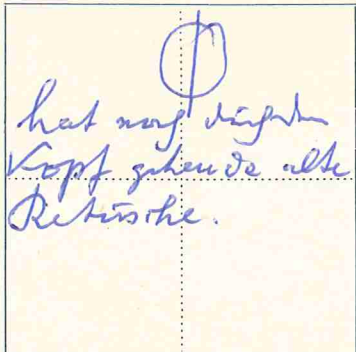 hat noch durch den
Kopf gehende alte
Retusche.